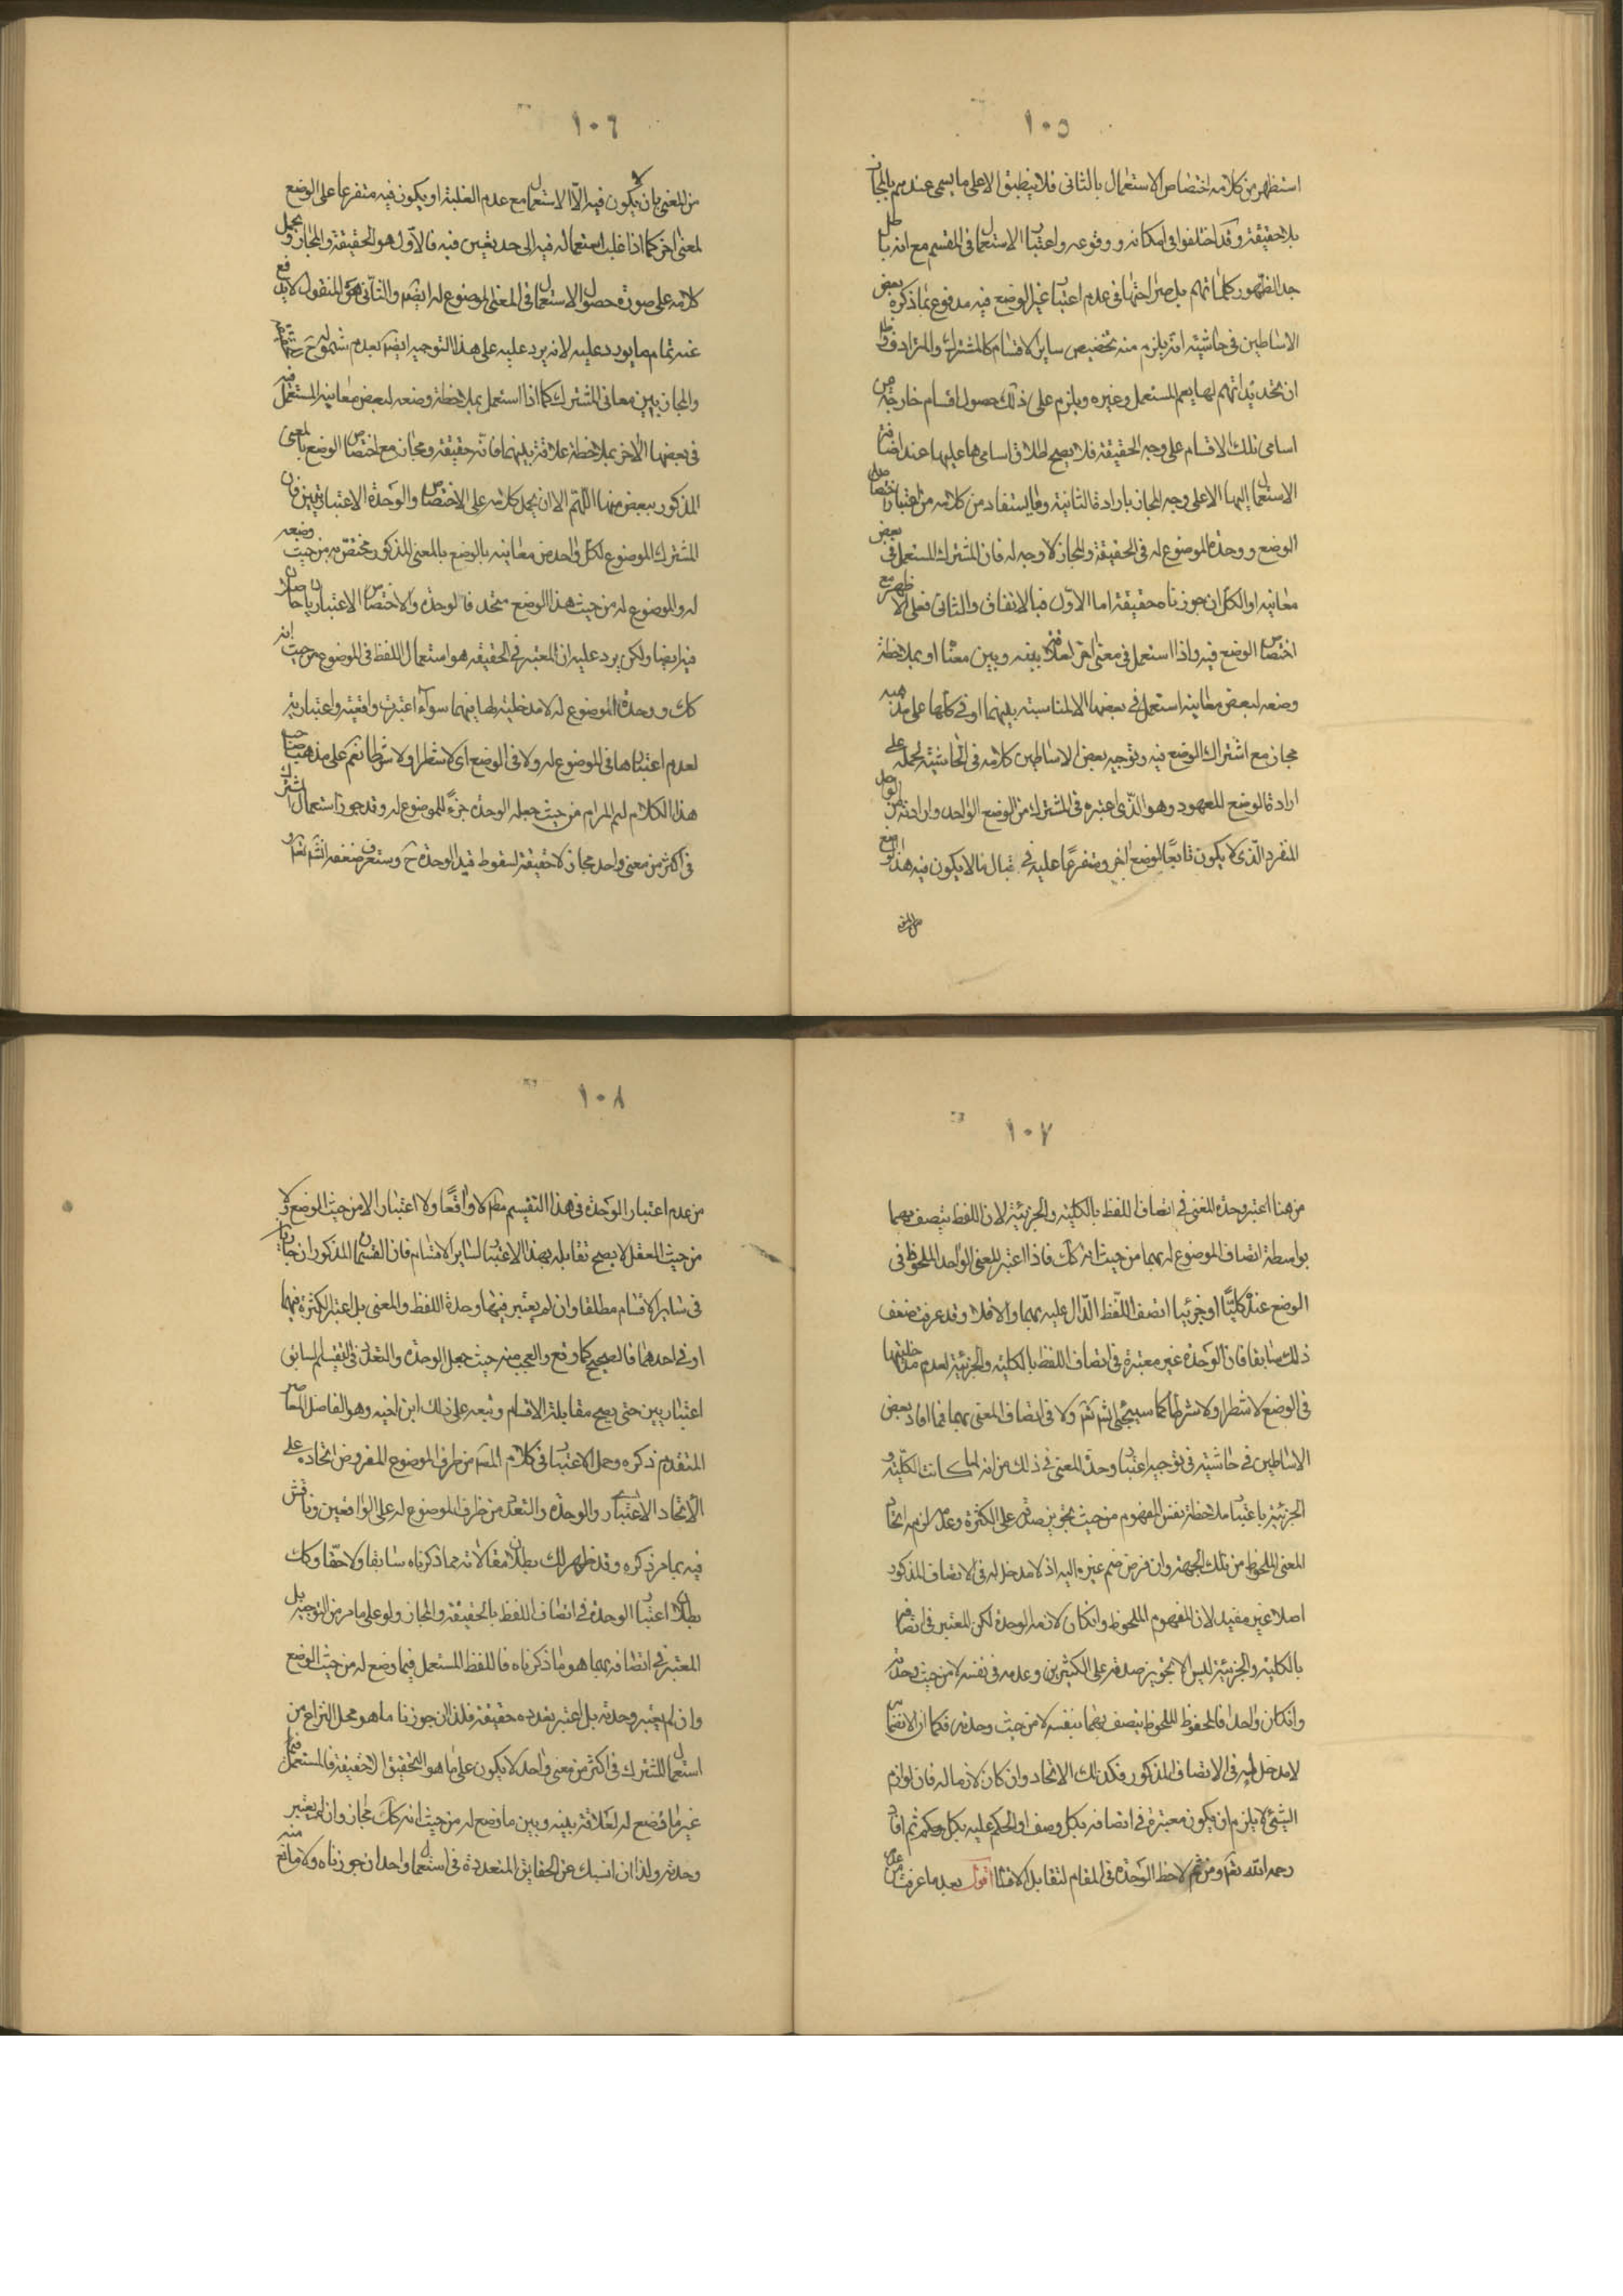 ١٠٥
استظهر من كلامه اختصاص الاستعمال بالثانى فلا ينطبق الا على ما يسمى عندهم بالمجاز
بلا حقيقة وقد اختلفوا فى امكانه و وقوعه واعتبار الاستعمال فى المقسم مع انه باطل
جدا لظهور كلماتهم بل صراحتها فى عدم اعتبار غير الوضع فيه مدفوع بما ذكره بعض
الاساطين فى حاشيته انه يلزم منه تخصيص ساير الاقسام كالمشترك والمترادف مع
ان تحديداتهم لها يعم المستعمل وغيره ويلزم على ذلك حصول اقسام خارجة من
اسامى تلك الاقسام على وجه الحقيقة فلا يصح اطلاق اسامى ها عليها عند اضافة
الاستعمال اليها الا على وجه المجاز بارادة الثانية وما يستفاد من كلامه من اعتبار اختصاص
الوضع و وحدة الموضوع له فى الحقيقة والمجاز لا وجه له فان المشترك المستعمل فى بعض
معانيه او الكل ان جوزناه حقيقة اما الاول فبالاتفاق والثانى فعلى الاظهر مع
اختصاص الوضع فيه واذا استعمل فى معنى اخر لعلاقة بينه وبين معناه او بملاحظة
وضعه لبعض معانيه استعمل فى بعضها الا لمناسبة بينهما او فى كلها على مذهبه
مجاز مع اشتراك الوضع فيه وتوجيه بعض الاساطين كلامه فى الحاشية لحمله على
ارادة الوضع للمعهود وهو الذى اعتبره فى المشترك من الوضع الواحد وارادته من الواحد
المنفرد الذى لا يكون تابعا لوضع اخر ومتفرعا عليه فى قبال ما لا يكون فيه هذا الوضع
١٠٦
من المعنى بان لا يكون فيه الا الاستعمال مع عدم الغلبة او يكون فيه متفرعا على الوضع
لمعنى اخر كما اذا غلب استعماله فيه الى حد يتعين فيه فالاول هو الحقيقة والمجاز ويحمل
كلامه على صورة حصول الاستعمال فى المعنى الموضوع له ايضا والثانى هو المنقول لا يدفع
عنه تمام ما يورد عليه لانه يرد عليه على هذا التوجيه ايضا بعدم شموله ح
والمجاز بين معانى المشترك كما اذا استعمل بملاحظة وضعه لبعض معانيه المستعمل فيه
فى بعضها الاخر بملاحظة علاقة بينهما فانه حقيقة ومجاز مع اختصاص الوضع بالمعنى
المذكور ببعض منها اللهم الا ان يحمل كلامه على الاختصاص والوحدة الاعتباريين فان
المشترك الموضوع لكل واحد من معانيه بالوضع بالمعنى المذكور مختص به من حيث وضعه
له والموضوع له من حيث هذا الوضع متحد فالوحدة والاختصاص الاعتباريان حاصلان
فيه ايضا ولكن يرد عليه ان المعتبر فى الحقيقة هو استعمال اللفظ فى الموضوع من حيث انه
كك و وحدة الموضوع له لا مدخلية لها فيهما سواء اعتبرت واقعية واعتبارية
لعدم اعتبارها فى الموضوع له ولا فى الوضع اى لا شطرا ولا شرطا نعم على مذهب صاحب
هذا الكلام ليتم المرام من حيث جعله الوحدة جزءً للموضوع له وقد جوز استعمال المشترك
فى اكثر من معنى واحد مجازا لا حقيقة لسقوط قيد الوحدة ح وستعرف ضعفه انش تعالى
١٠٧
من هنا اعتبر وحدة المعنى فى اتصاف اللفظ بالكلية والجزئية لان اللفظ يتصف بهما
بواسطة اتصاف الموضوع له بهما من حيث انه كك فاذا اعتبر المعنى الواحد الملحوظ فى
الوضع عند كليا او جزئيا اتصف اللفظ الدال عليه بهما والا فلا وقد عرفت ضعف
ذلك سابقا فان الوحدة غير معتبرة فى اتصاف اللفظ بالكلية والجزئية لعدم مدخليتها
فى الوضع لا شطرا ولا شرطا كما سيجئ انش تعالى ولا فى اتصاف المعنى بهما فما افاد بعض
الاساطين فى حاشيته فى توجيه اعتبار وحدة المعنى فى ذلك من انه لما كانت الكلية و
الجزئية باعتبار ملاحظة نفس المفهوم من حيث تجويز صدقه على الكثرة وعدمه لزمه اتحاد
المعنى الملحوظ من تلك الجهة وان فرض ضم غيره اليه اذ لا مدخل له فى الاتصاف المذكور
اصلا غير مفيد لان المفهوم الملحوظ وانكان لازمه الوحدة لكن المعتبر فى اتصافه
بالكلية والجزئية ليس الا تجويز صدقه على الكثيرين وعدمه فى نفسه لا من حيث وحدته
وانكان واحدا فالمحفوظ الملحوظ يتصف بهما بنفسه لا من حيث وحدته فكما ان الانضمام
لا مدخل له فى الاتصاف المذكور فكذلك الاتحاد وان كان لازما له فان لوازم
الشئ لا يلزم ان يكون معتبرة فى اتصافه بكل وصف او الحكم عليه بكل حكم ثم افاد
رحمه الله تعالى ومن ثم لاحظ الوحدة فى المقام لتقابل الاقسام اقول بعد ما عرفت من
١٠٨
من عدم اعتبار الوحدة فى هذا التقسيم مطلقا لا واقعا ولا اعتبارا لا من حيث الوضع ولا
من حيث العقل لا يصح تقابله بهذا الاعتبار لساير الاقسام فان القسمان المذكوران جاريان
فى ساير الاقسام مطلقا وان لم يعتبر فيهما وحدة اللفظ والمعنى بل اعتبر الكثرة فيهما
او فى احدهما فالصحيح كما وقع والعجب منه حيث جعل الوحدة والتعدد فى التقسيم السابق
اعتباريين حتى يصح مقابلة الاقسام وتبعه على ذلك ابن اخيه وهو الفاضل المعاصر
المتقدم ذكره وحمل الاعتبار فى كلام المص من طرف الموضوع المفروض اتحاده على
الاتحاد الاعتبارى والوحدة والتعدد من طرف الموضوع له على الواقعيين وناقش
فيه بما مر ذكره وقد ظهر لك بطلان مقالاته مما ذكرناه سابقا ولاحقا وكك
بطلان اعتبار الوحدة فى اتصاف اللفظ بالحقيقة والمجاز ولو على ما مر من التوجيه بل
المعتبر فى اتصافه بهما هو ما ذكرناه فاللفظ المستعمل فيما وضع له من حيث الوضع
وان لم يعتبر وحدته بل اعتبر تعدده حقيقة فلذا لن جوزنا ما هو محل النزاع من
استعمال المشترك فى اكثر من معنى واحد لا يكون على ما هو التحقيق الا حقيقة فالمستعمل فيما
غير ما وضع له لعلاقة بينه وبين ما وضع له من حيث انه كك مجاز وان لم يعتبر
وحدته ولذا ان انسبك عن الحقايق المتعددة فى استعمال واحد ان جوزناه ولا مانع منه